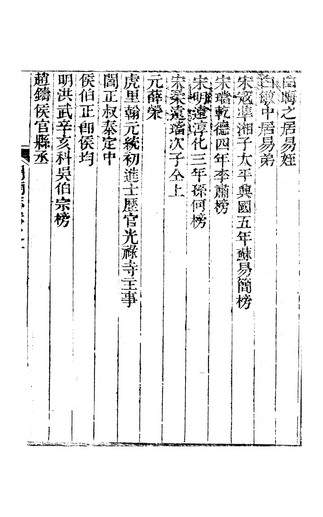 白晦之居易姪
白敏中居易弟
宋寇準湘子太平興國五年蘇易簡榜
宋璫乾德四年李肅榜
宋明遠淳化三年孫何榜
宋柔遠璫次子仝上
元薛榮
虎里翰元統初進士歷官光祿寺主事
閻正叔泰定中
侯伯正郎侯均
明洪武辛亥科吳伯宗榜
趙鑄侯官縣丞